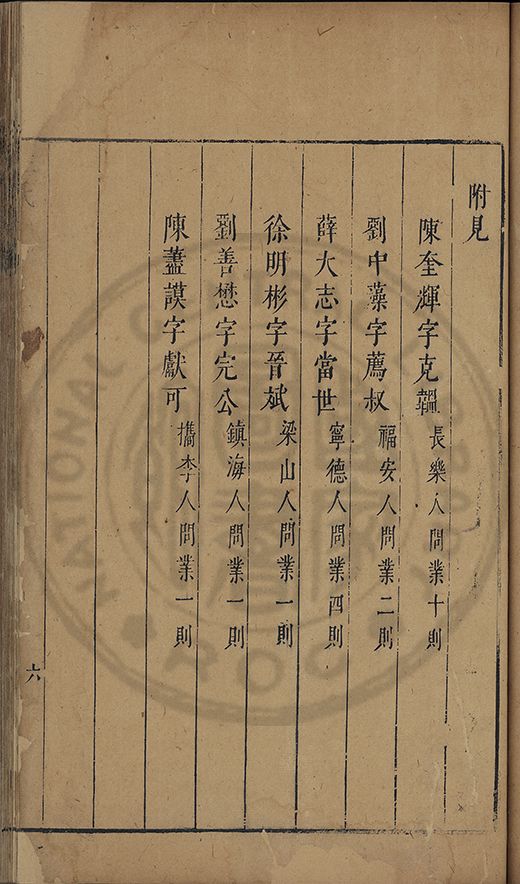 附見
陳奎輝字克韞長樂人問業十則
劉中藻字薦叔福安人問業二則
薛大志字當世寧德人問業四則
徐明彬字晉斌梁山人問業一則
劉善懋字完公鎮海人問業一則
陳藎謨字獻可攜李人問業一則
六